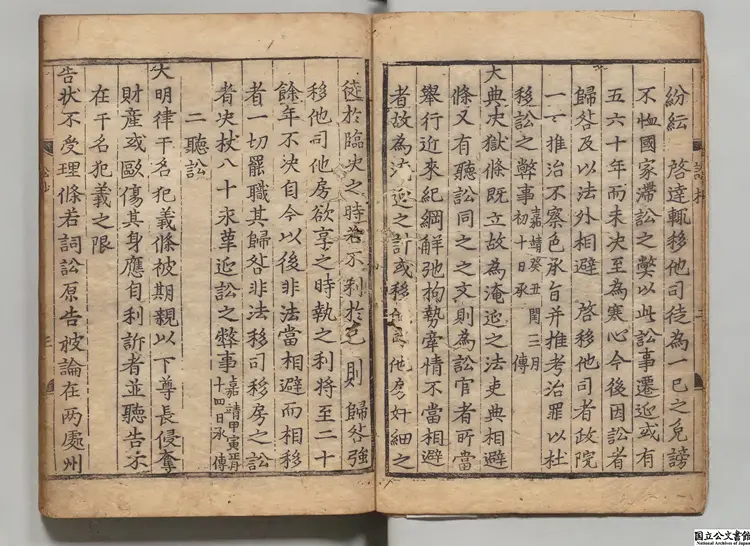 紛紜 啓達輒移他司徒為一已之免謗
不恤國家滯訟之獘以此訟事遷延或有
五六十年而未決至為寒心今後因訟者
歸咎及以法外相避 啓移他司者政院
一一推治不察色承旨并推考治罪以杜
移訟之弊事嘉靖癸丑閏三月初十日承 傳
大典決獄條既立故為淹延之法吏典相避
條又有聽訟同之之文則為訟官者所當
舉行近來紀綱解弛拘勢牽情不當相避
者故為沈延之計或移他房奸細之
徒於臨決之時若不利於已則歸咎強
移他司他房欲享之時執之利將至二十
餘年不決自今以後非法當相避而相移
者一切罷職其歸咎非法移司移房之訟
者决杖八十永革延訟之弊事嘉靖甲寅正月十四日承 傳
二聽訟
大明律干名犯義條被期親以下尊長侵奪
財産或毆傷其身應自利訴者並聽告不
在干名犯義之限
告状不受理條若詞訟原告被論在两處州
国立公文書館
National Archives of Japan